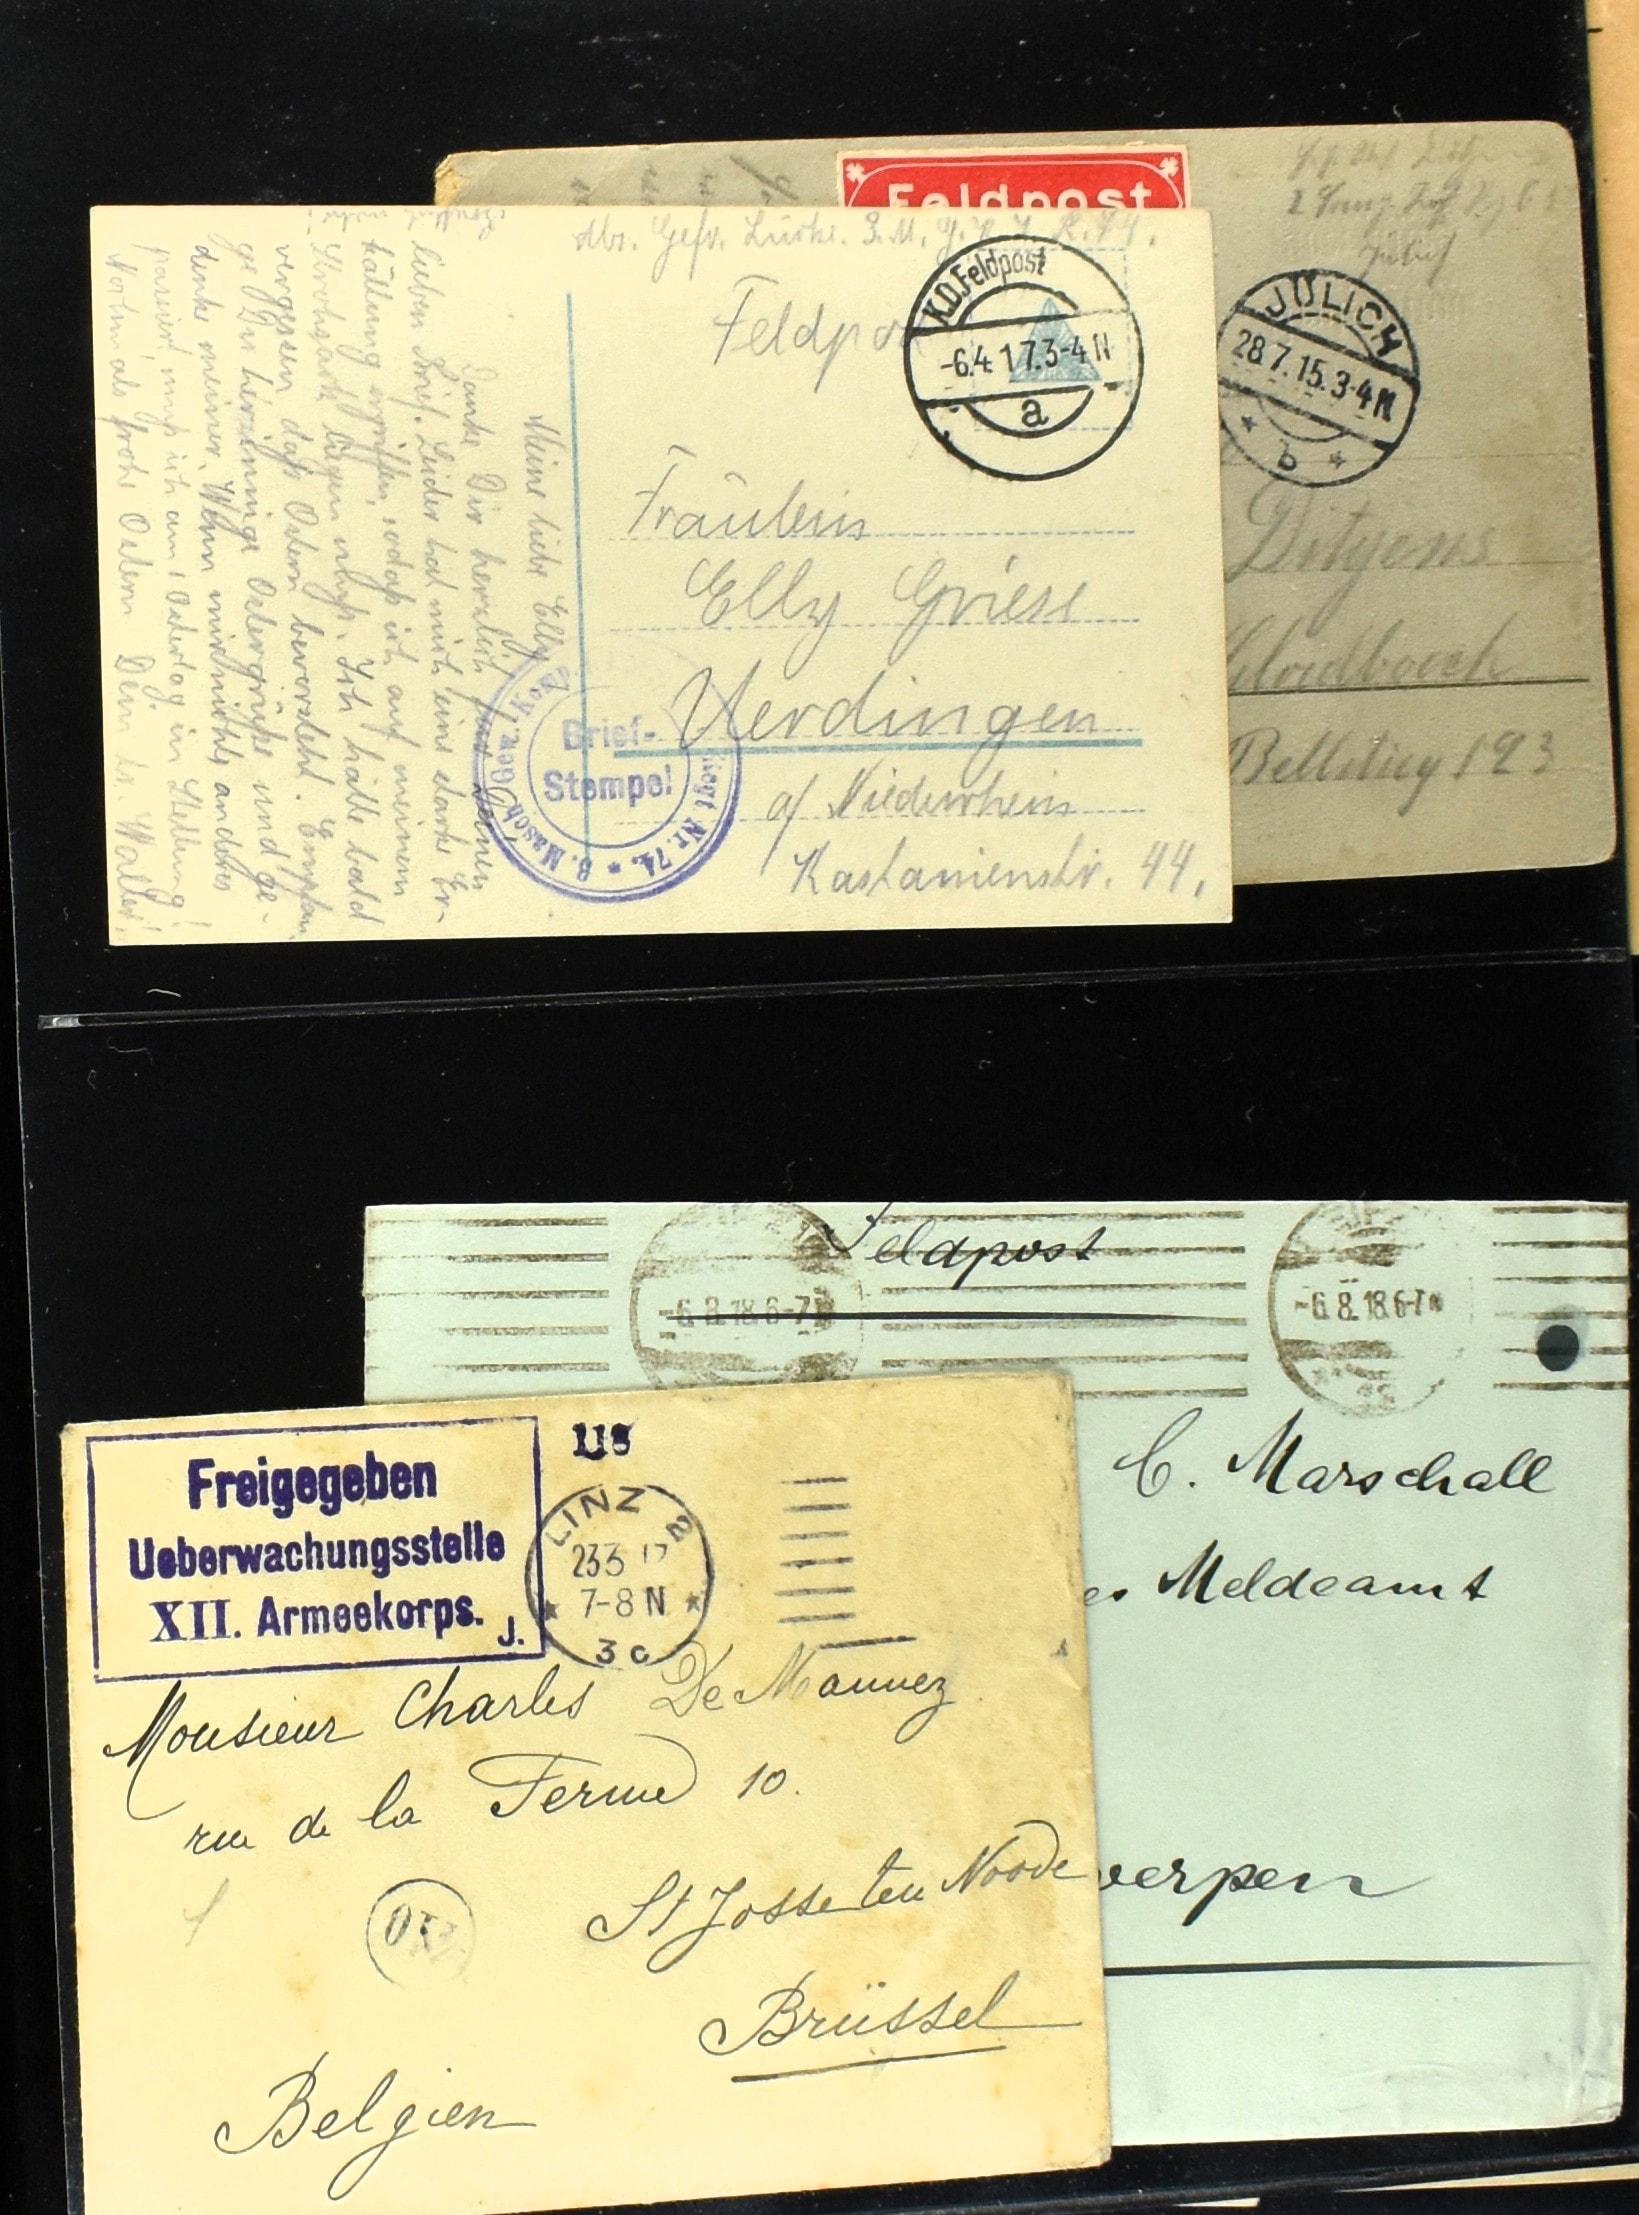 Feldpost
Jülich
JÜLICH
28.7.15.3-4 N
b
Bellstieg 123
Gefr. 3. M. G. K. J. R. 74.
Feldpost
K.D. Feldpost
-6.4 17.3-4 N
a
Fräulein
Elly Griese
Uerdingen
a/ Niederrhein
Kastanienstr. 44.
Brief-
Stempel
3. Masch. Gew. Komp. Regt Nr. 74.
Meine liebe Elly!
Danke Dir herzlich für Deinen
lieben Brief. Leider hat mich eine starke Er-
kältung ergriffen, sodaß ich auf meinem
Strohsack liegen muß. Ich hätte bald
vergessen daß Ostern bevorsteht. Empfan
ge Du herzinnige Ostergrüße und ge-
denke meiner. Wenn mir nichts anderes
passiert, muß ich am Ostertag in Stellung!
Nochmals frohe Ostern Dein lb. Walter!
Feldpost
-6.8.18.6-7 N
-6.8.18.6-7 N
C. Marschall
Meldeamt
werpen
Freigegeben
Ueberwachungsstelle
XII. Armeekorps.
J.
LINZ 2
7-8 N
3c
Monsieur Charles De Mannez
rue de la Ferme 10.
St Josse ten Noode
Brüssel
Belgien